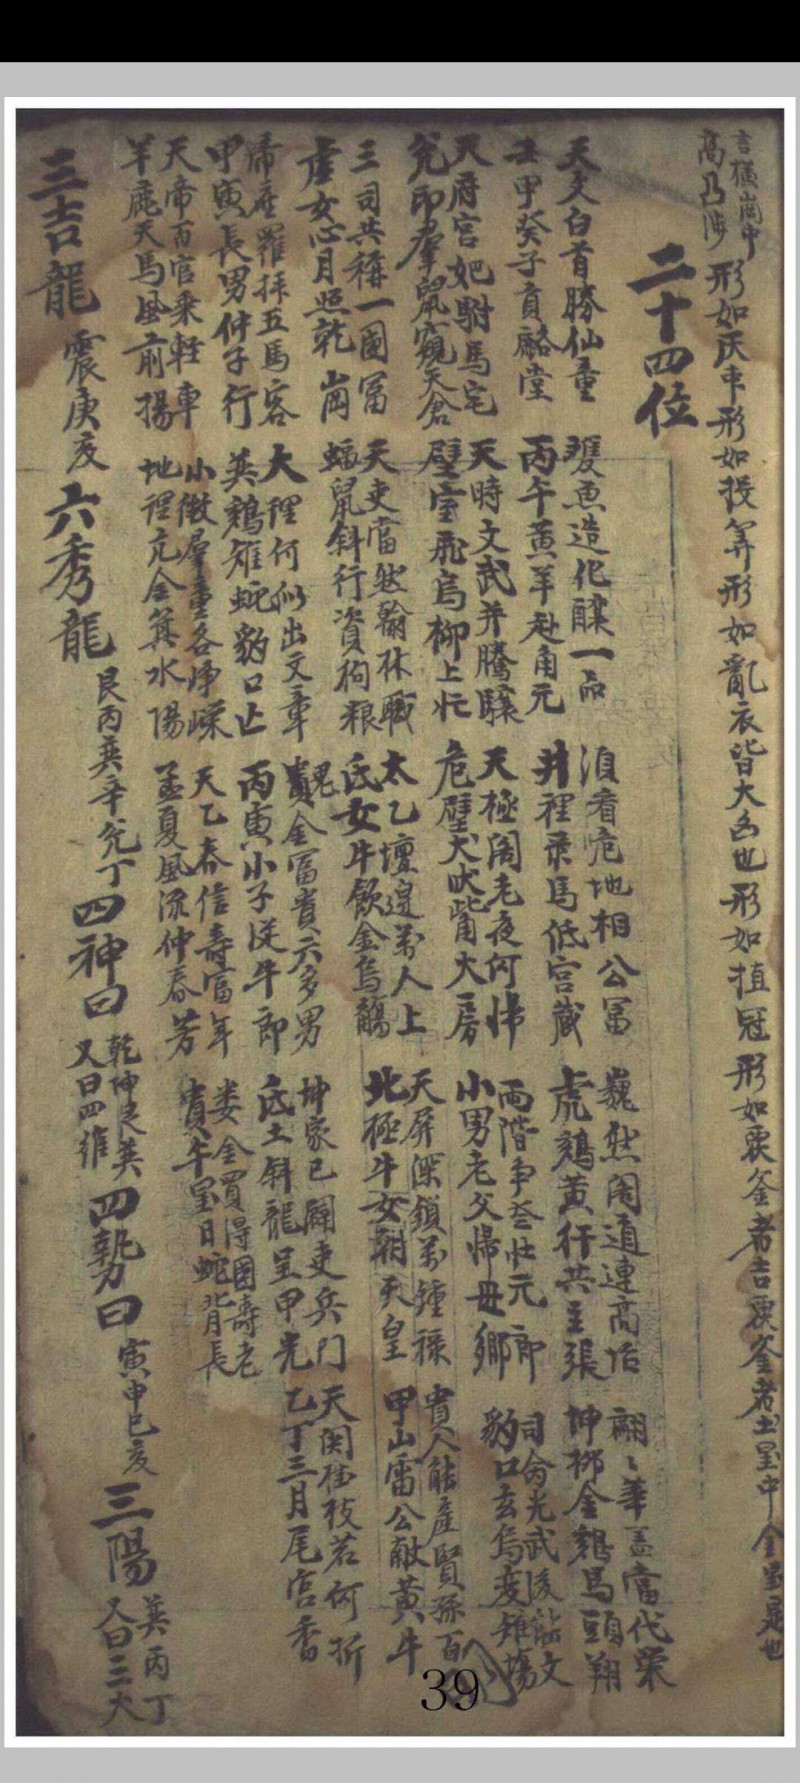 言橫崗中
高凸涉
形如灰車形如投筭形如亂衣皆大凶也形如植冠形如覆釜者吉覆釜者土星中金星是也
二十四位
天文白首勝仙童 雙魚造化釀一品 須看危地相公冨 巍然閣道連高 翩〻華盖當代榮
壬甲癸子貢 堂 丙午黃羊赴角元 井裡乘馬低宮藏 虎鷄黃行共主張 坤柳金鷄馬頭翔
天府宮妃駙馬宅 天時文武并騰驤 天極閣老夜何帰 兩階爭 壯元郎 司 光武後 文
兊卯羣鼠窺天倉 壁室飛烏柳上忙 危壁犬吠觜大房 小男老父帰毋鄉 豹口玄烏變雉塲
三司共稱一國冨 天吏當然翰林職 太乙壇邉万人上 天屏深鎖万鍾祿 貴人能產賢孫百
虛女心月照乾崗 蝠鼠斜行資狗粮 氐女牛飲金烏觴 北極牛女朝天皇 甲山雷公獻黃牛
帝座羅拜五馬客 大理何似出文章 貴金冨貴六多男 坤家已闢吏兵门 天関桂枝若何折
甲寅長男仲子行 英鷄雉蛇豹口止 丙寅小子従牛郎 氐土斜龍呈甲光 乙丁三月尾宮香
天帝百官乘軽車 小微羣童各爭嶸 天乙春信壽富年 婁金買得國壽老
羊鹿天馬風前揚 地裡亢金箕水陽 孟夏風流仲春芳 貴午星日蛇背長
三吉龍 震庚亥 六秀龍 艮丙巽辛兊丁 四神曰 乾坤艮巽 又曰四維 四勢曰 寅申巳亥 三陽 巽丙丁 又曰三火
39